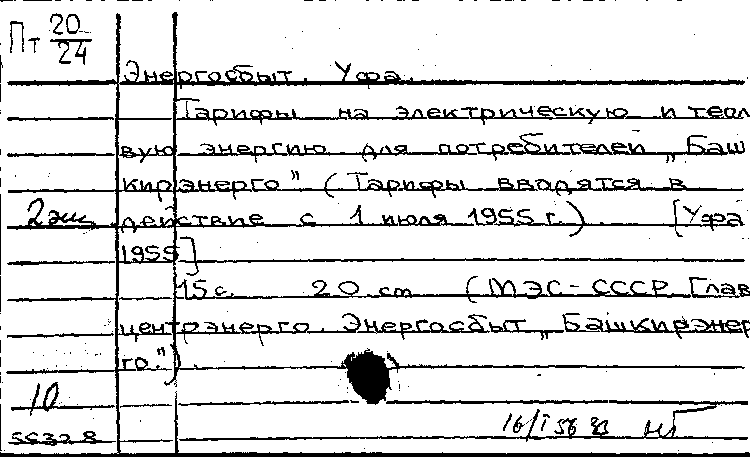 Пт 20/24
Энергосбыт. Уфа.
Тарифы на электрическую и тепл
вую энергию для потребителей „Баш
кирэнерго" (Тарифы вводятся в
2 экз. действие с 1 июля 1955 г.). [Уфа
1955]
15 с. 20 см (МЭС-СССР. Глав
центрэнерго. Энергосбыт „Башкирэнер
го.").
10
56328
16/I 56